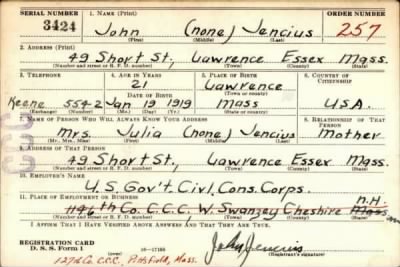 SERIAL NUMBER 1. NAME (Print) ORDER NUMBER
3424 John (none) Jencius 257
(First) (Middle) (Last)
2. ADDRESS (Print)
49 Short St., Lawrence Essex Mass.
(Number and street or R. F. D. number) (Town) (County) (State)
3. TELEPHONE 4. AGE IN YEARS 5. PLACE OF BIRTH 6. COUNTRY OF CITIZENSHIP
21 Lawrence
DATE OF BIRTH (Town or county)
Keene 554-2 Jan 19 1919 Mass U.S.A.
(Exchange) (Number) (Mo.) (Day) (Yr.) (State or country)
7. NAME OF PERSON WHO WILL ALWAYS KNOW YOUR ADDRESS 8. RELATIONSHIP OF THAT PERSON
Mrs. Julia (none) Jencius Mother
(Mr., Mrs., Miss) (First) (Middle) (Last)
9. ADDRESS OF THAT PERSON
49 Short St., Lawrence Essex Mass.
(Number and street or R. F. D. number) (Town) (County) (State)
10. EMPLOYER'S NAME
U.S. Gov't. Civl. Cons. Corps.
11. PLACE OF EMPLOYMENT OR BUSINESS N.H.
1196th Co. C.C.C. W. Swanzey Cheshire Mass
(Number and street or R. F. D. number) (Town) (County) (State)
I AFFIRM THAT I HAVE VERIFIED ABOVE ANSWERS AND THAT THEY ARE TRUE.
REGISTRATION CARD
D. S. S. Form 1 16—17105 John Jencius
(Registrant's signature)
Co. C.C.C., Pittsfield, Mass.
CCC